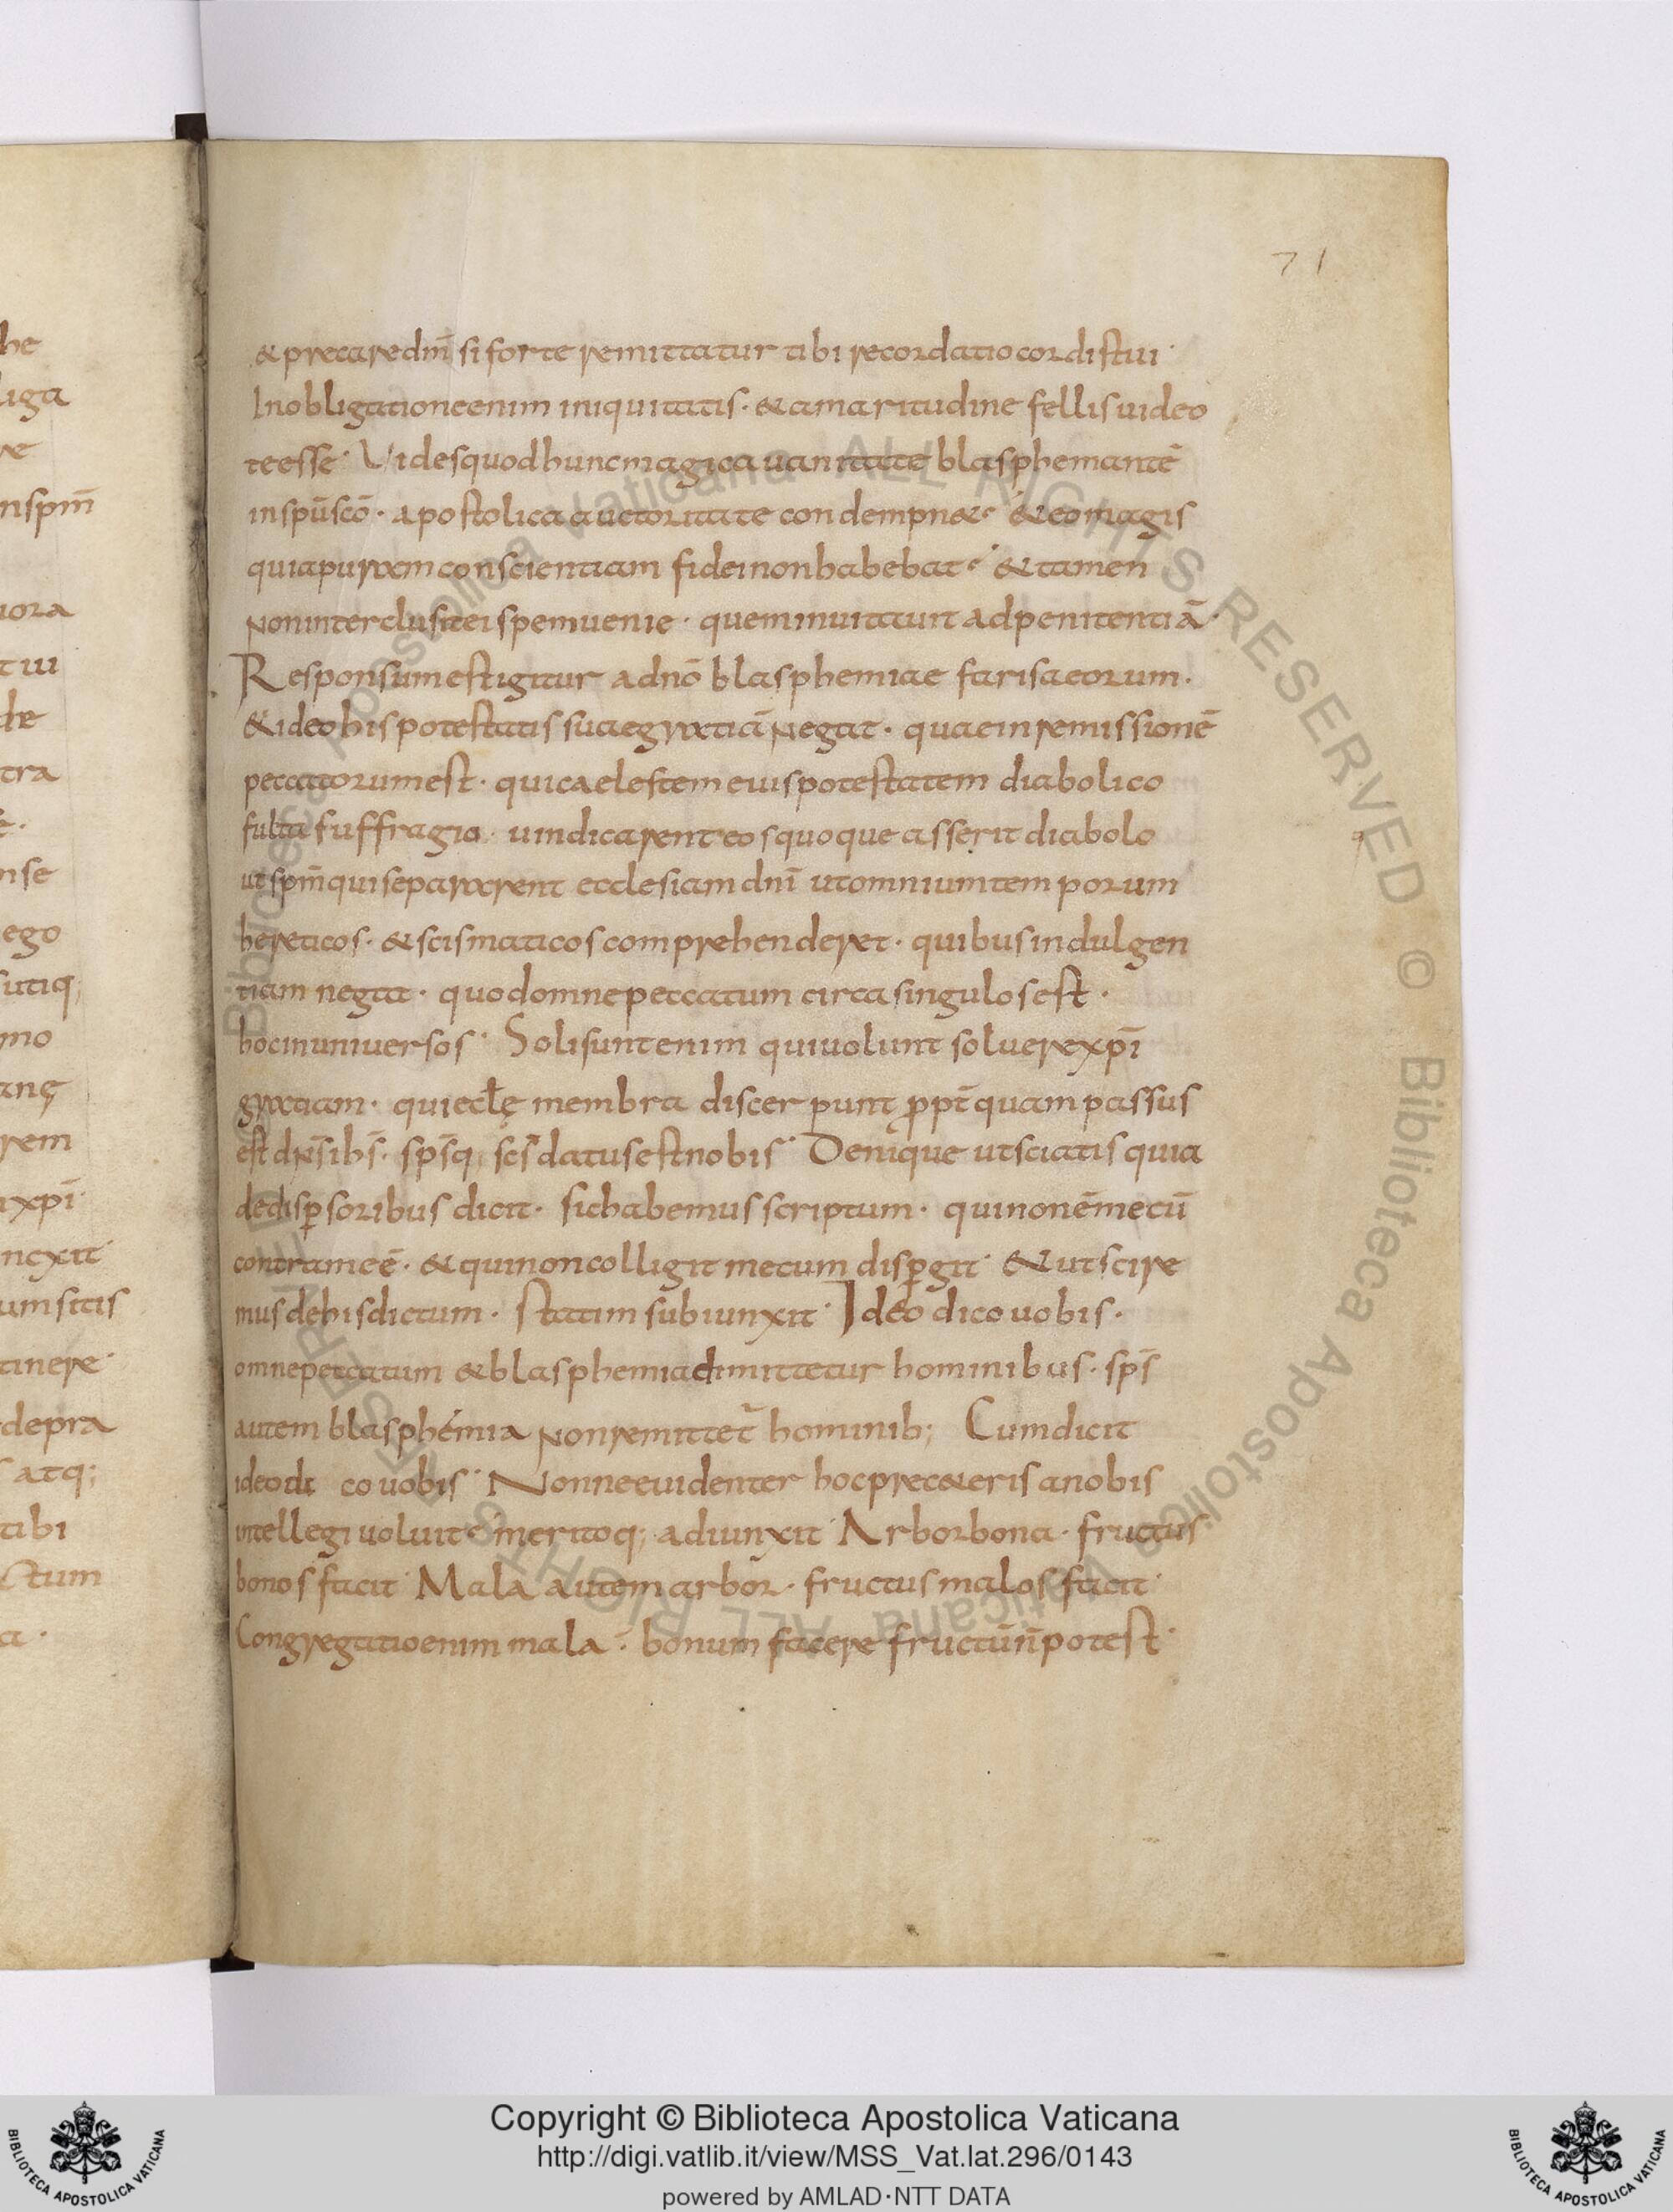 71
he
liga
re
nspm̄
uora
t ui
de
tra
nse
ego
sutiq;
mo
anę
rem
ixpi
ncxit
umsitis
tinere
depra
atq;
tibi
ctum
a ·
& precare dnm̄ si forte remittatur tibi recordatio cordis tui ·
In obligatione enim iniquitatis · & amaritudine fellis uideo
te esse · Uides quod hunc magica uanitate blasphemantē
in spūscō · apostolica auctoritate condempn& · & eo magis
quia puram conscientiam fidei non habebat · & tamen
non interclusit ei spem uenie · quem inuitauit ad penitentiā ·
Responsum est igitur a dnō blasphemiae farisaeorum ·
& ideo his potestatis suae gratiā negat · quae in remissionē
peccatorum est · qui caelestem eius potestatem diabolico
fulta suffragio · uindicarent eos quoque asserit diabolo
ut spm̄ qui separarent ecclesiam dnī ut omnium temporum
hereticos · & scismaticos comprehenderet · quibus indulgen
tiam negat · quod omne peccatum circa singulos est ·
hoc in uniuersos · Soli sunt enim qui uolunt soluere xpī
gratiam · qui eclę membra discerpunt ꝓpt̄ quam passus
est dn̄s ihs̄ · sps̄q; scs̄ datus est nobis · Denique ut sciatis quia
de disꝑsoribus dicit · sic habemus scriptum · qui non ē mecū
contra me ē · & qui non colligit mecum disꝑgit · & ut scire
mus de his dictum · statim subiunxit · Ideo dico uobis ·
omne peccatum & blasphemia dimittetur hominibus · sps̄
autem blasphemia non remittet̄ hominib; Cum dicit
ideo di co uobis · Nonne euidenter hoc prec&eris a nobis
intellegi uoluit · meritoq; adiunxit · Arbor bona · fructus
bonos facit · Mala autem arbor · fructus malos facit ·
Congregatio enim mala · bonum facere fructū n̄ potest ·
Biblioteca Apostolica Vaticana ALL RIGHTS RESERVED © Biblioteca Apostolica Vaticana ALL RIGHTS RESERVED
Copyright © Biblioteca Apostolica Vaticana
http://digi.vatlib.it/view/MSS_Vat.lat.296/0143
powered by AMLAD·NTT DATA
BIBLIOTECA APOSTOLICA VATICANA
BIBLIOTECA APOSTOLICA VATICANA